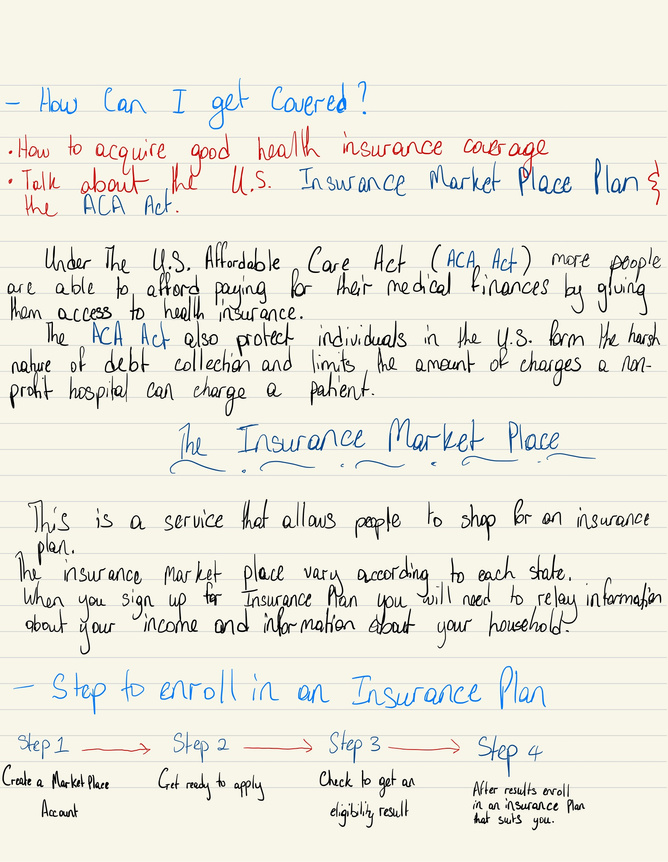 - How Can I get Covered?
• How to acquire good health insurance coverage
• Talk about the U.S. Insurance Market Place Plan &
the ACA Act.
Under The U.S. Affordable Care Act (ACA Act) more people
are able to afford paying for their medical finances by giving
them access to health insurance.
The ACA Act also protect individuals in the U.S. form the harsh
nature of debt collection and limits the amount of charges a non-
profit hospital can charge a patient.
The Insurance Market Place
This is a service that allows people to shop for an insurance
plan.
The insurance market place vary according to each state.
When you sign up for Insurance Plan you will need to relay information
about your income and information about your household.
- Step to enroll in an Insurance Plan
Step 1 → Step 2 → Step 3 → Step 4
Create a Market Place Account
Get ready to apply
Check to get an eligibility result
After results enroll in an insurance Plan that suits you.